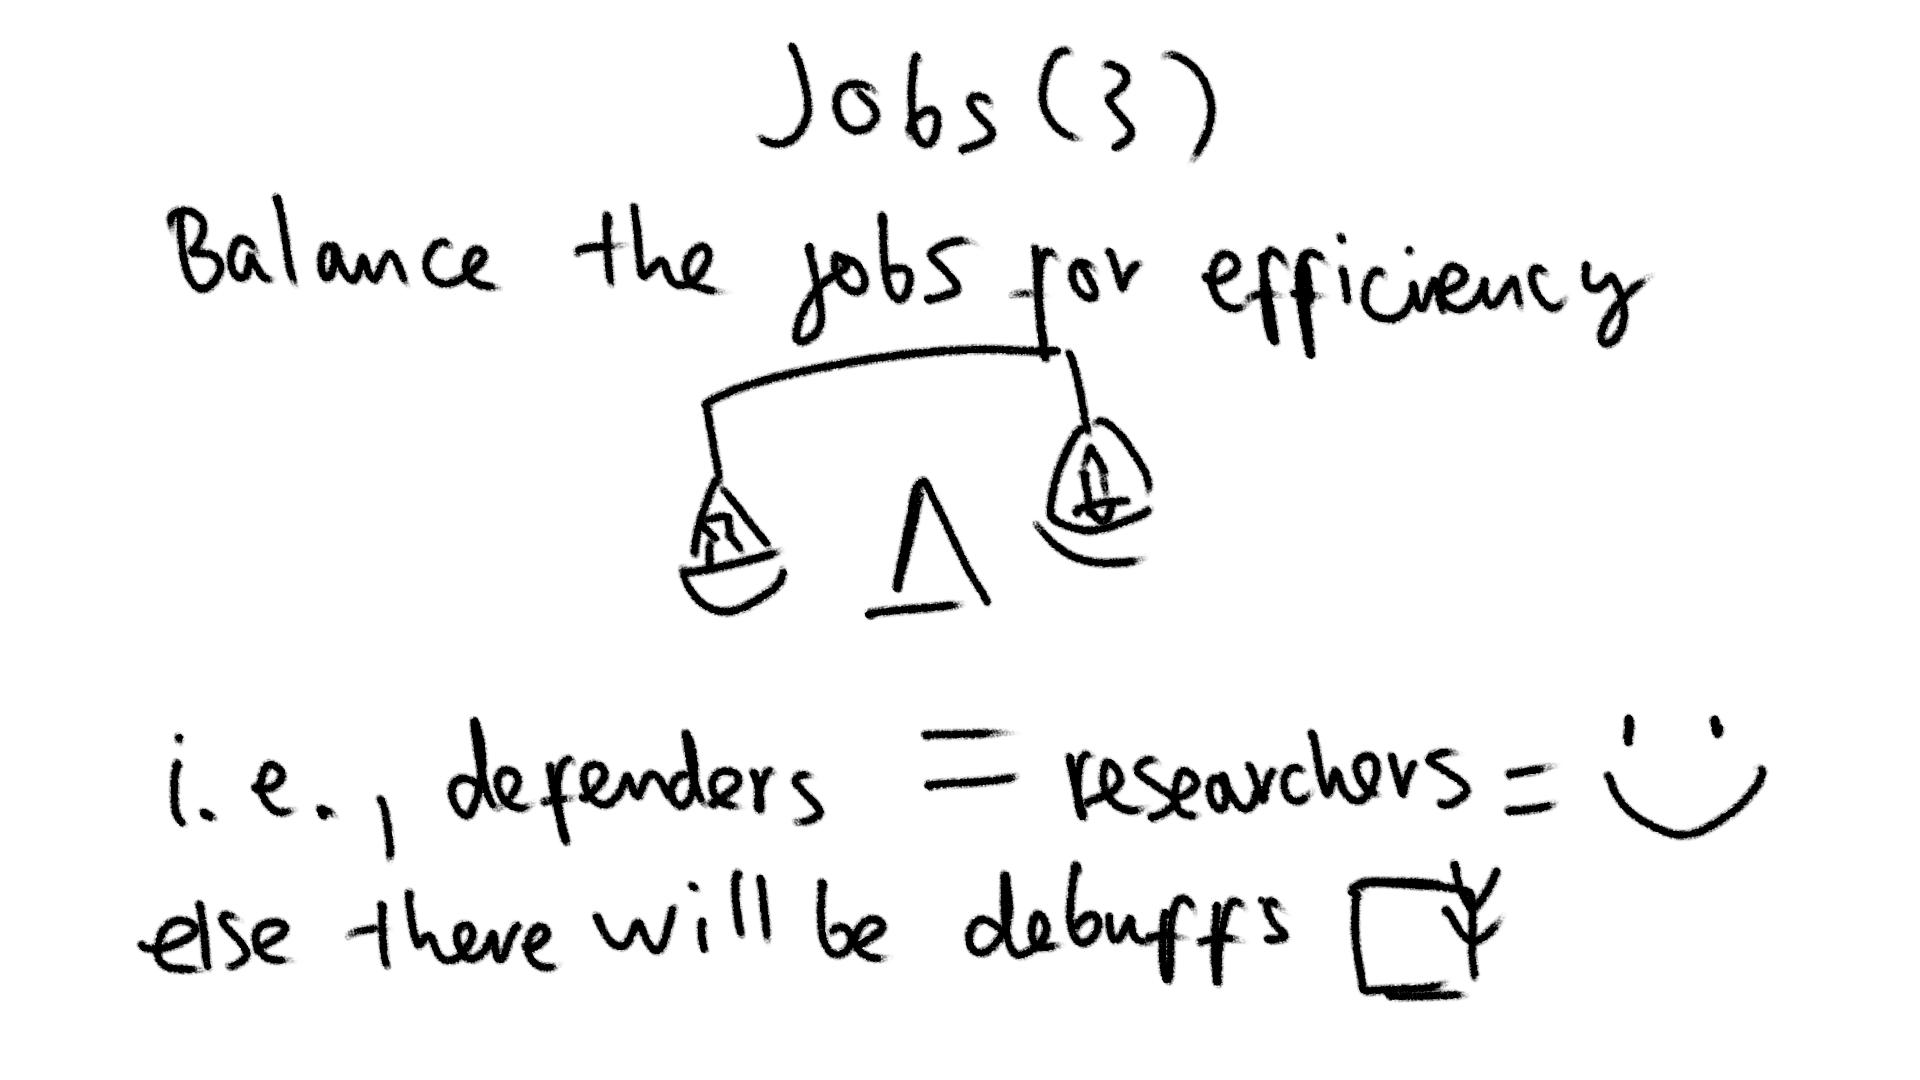 Jobs (3)
Balance the jobs for efficiency
i.e., defenders = researchers =
else there will be debuffs